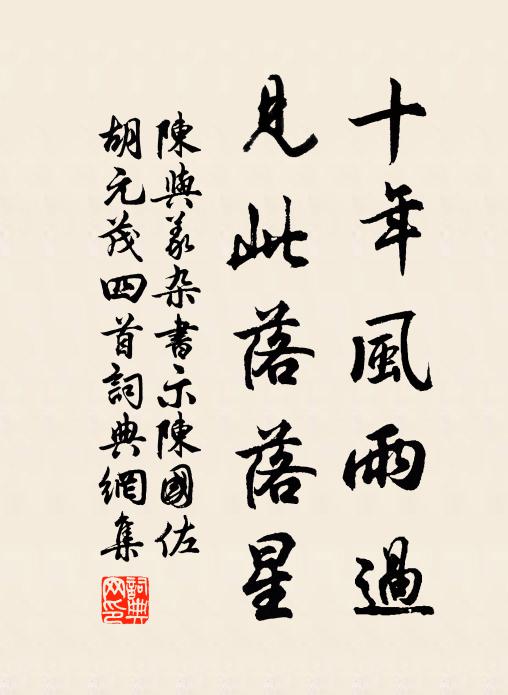 十年風雨過
見此落落星
陳與義杂書示陳國佐
胡元茂四首詞典網集
詞典网印